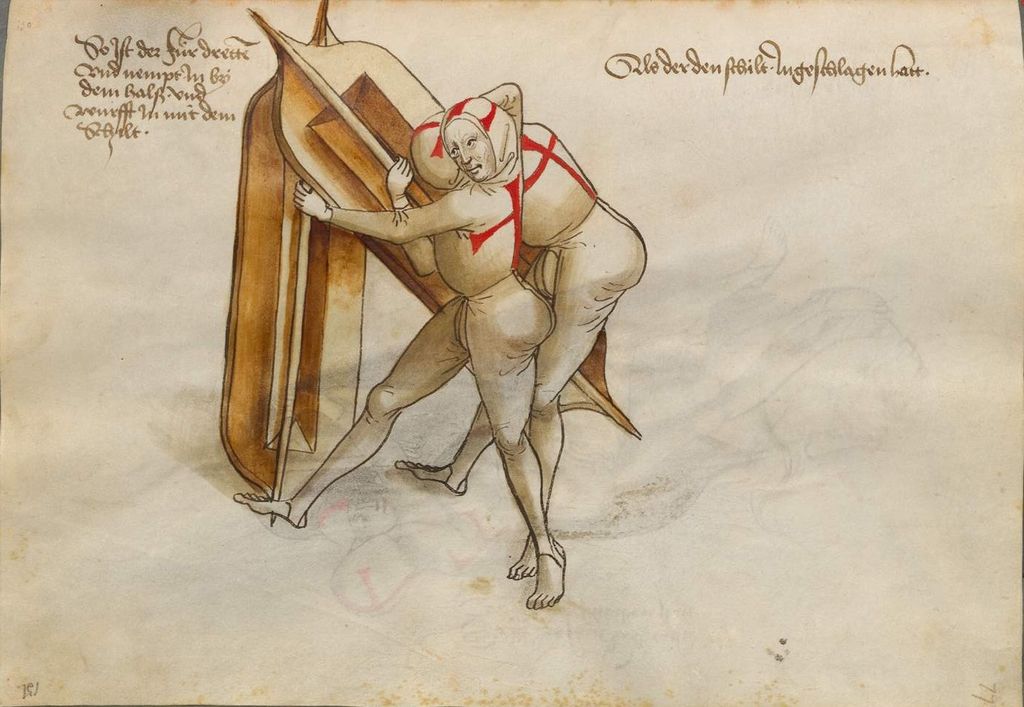 So ist der für dretten
Und nempt in by
dem hals und
wurfft in mit dem
Schilt.
Als der den schilt Ingeschlagen hatt.
77